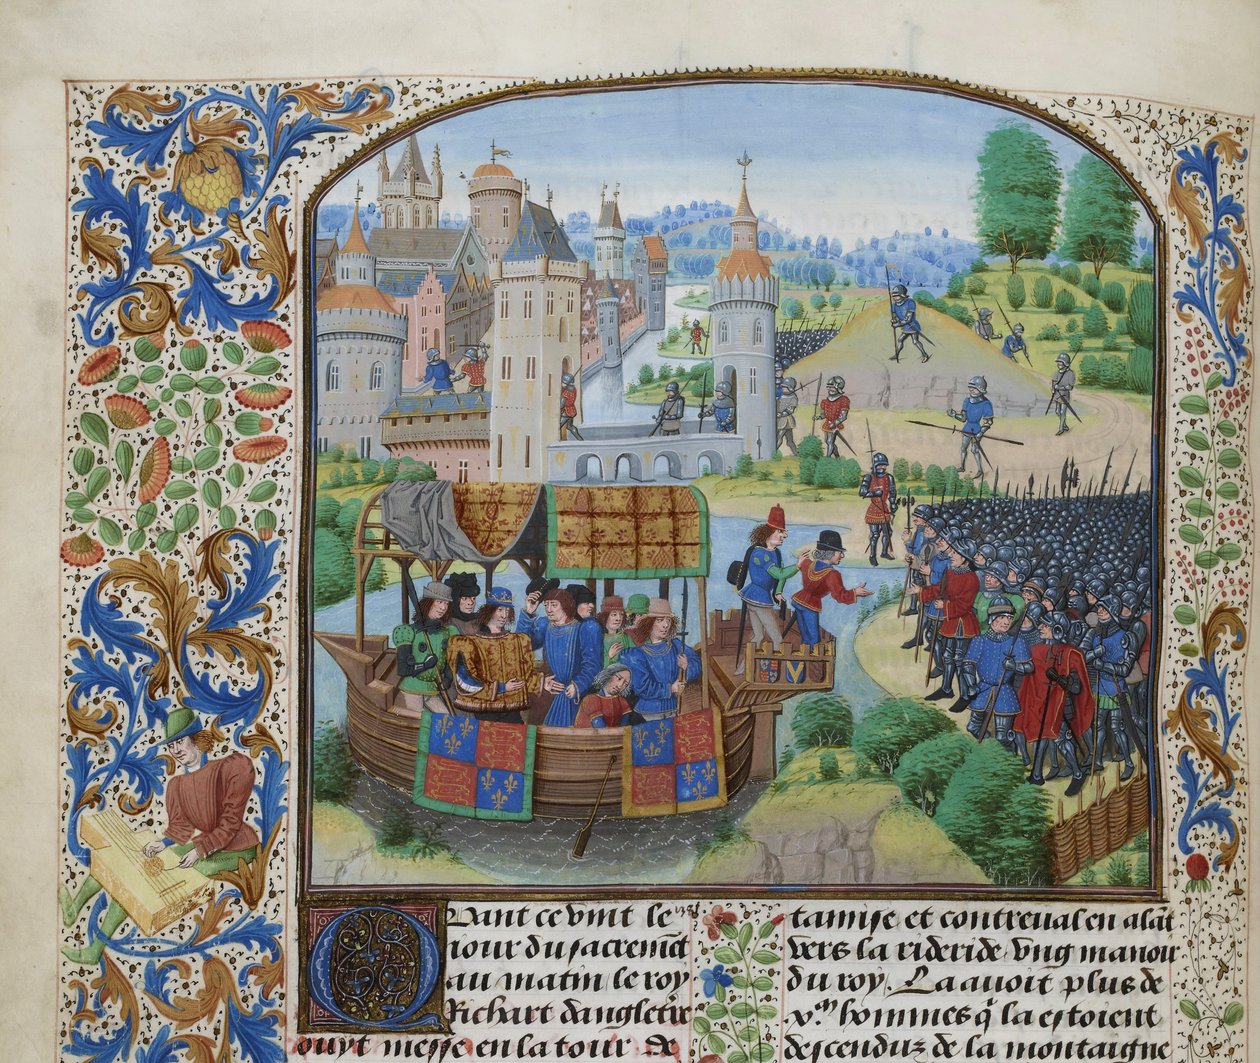 Quant ce vint le
iour du sacremēt
au matin le roy
Richart dangletre
ouyt messe en la tour de
tamise et contreual en alāt
vers la rideride vng manoir
du roy. La auoit plus de
v.ᵐ hommes q̄ la estoient
descenduz de la montaigne